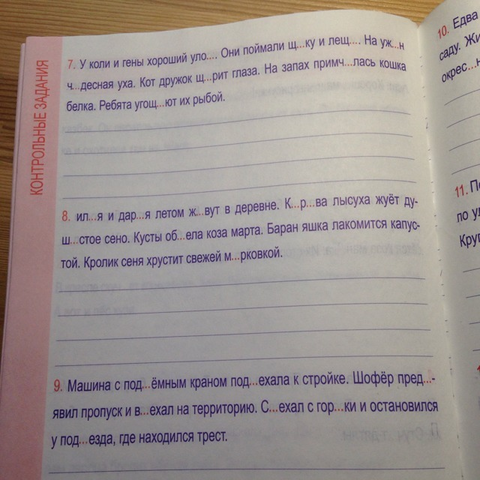 КОНТРОЛЬНЫЕ ЗАДАНИЯ
7. У коли и гены хороший уло.... Они поймали щ...ку и лещ.... На уж...н
ч...десная уха. Кот дружок щ...рит глаза. На запах примч...лась кошка
белка. Ребята угощ...ют их рыбой.
8. ил...я и дар...я летом ж...вут в деревне. К...р...ва лысуха жуёт ду-
ш...стое сено. Кусты об...ела коза марта. Баран яшка лакомится капус-
той. Кролик сеня хрустит свежей м...рковкой.
9. Машина с под...ёмным краном под...ехала к стройке. Шофёр пред...-
явил пропуск и в...ехал на территорию. С...ехал с гор...ки и остановился
у под...езда, где находился трест.
10. Едва
саду. Жи
окрес...н
11. По
по ул
Круг